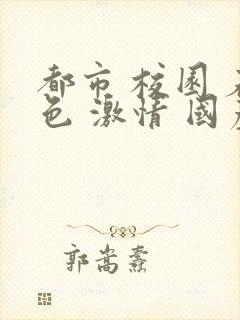 都市 校园
色 激情 国
郭嵩焘